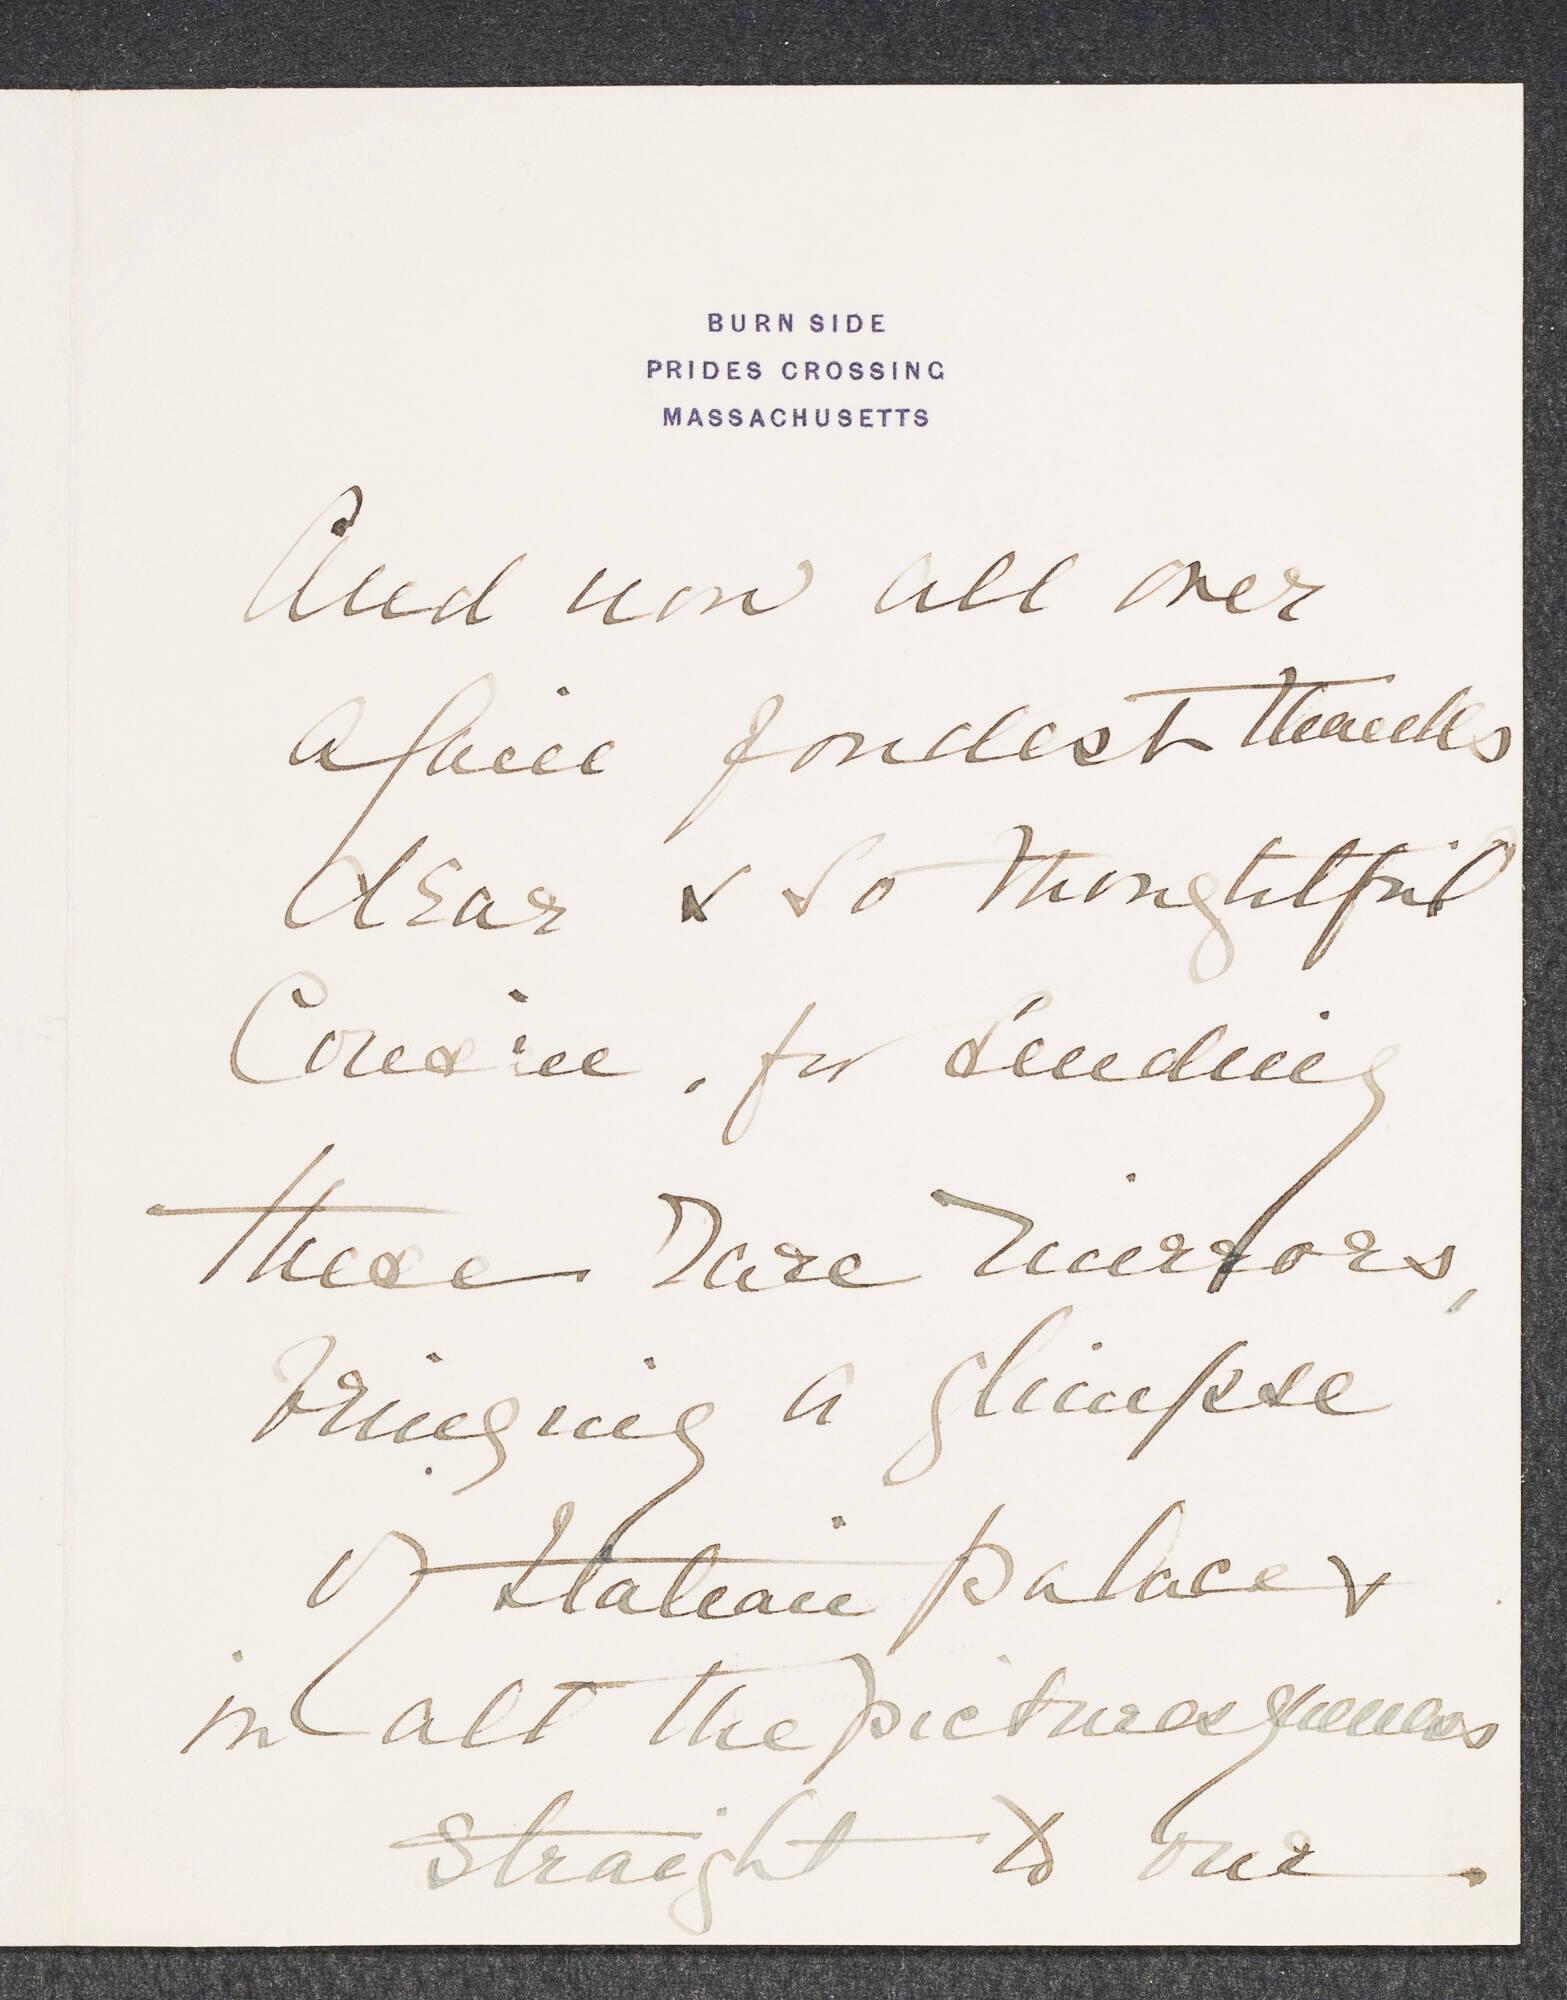 BURN SIDE
PRIDES CROSSING
MASSACHUSETTS
And now all over
again fondest thanks
dear & so thoughtful
Cousin, for sending
these rare mirrors,
bringing a glimpse
of Italian palace &
in all the picturesqueness
straight to our